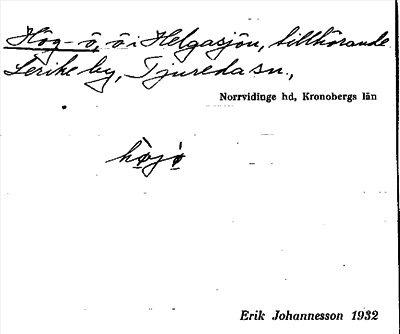 Hög-ö, ö i Helgasjön, tillhörande
Lerike by, Tjureda sn.,
Norrvidinge hd, Kronobergs län
hø̀jø̀
Erik Johannesson 1932